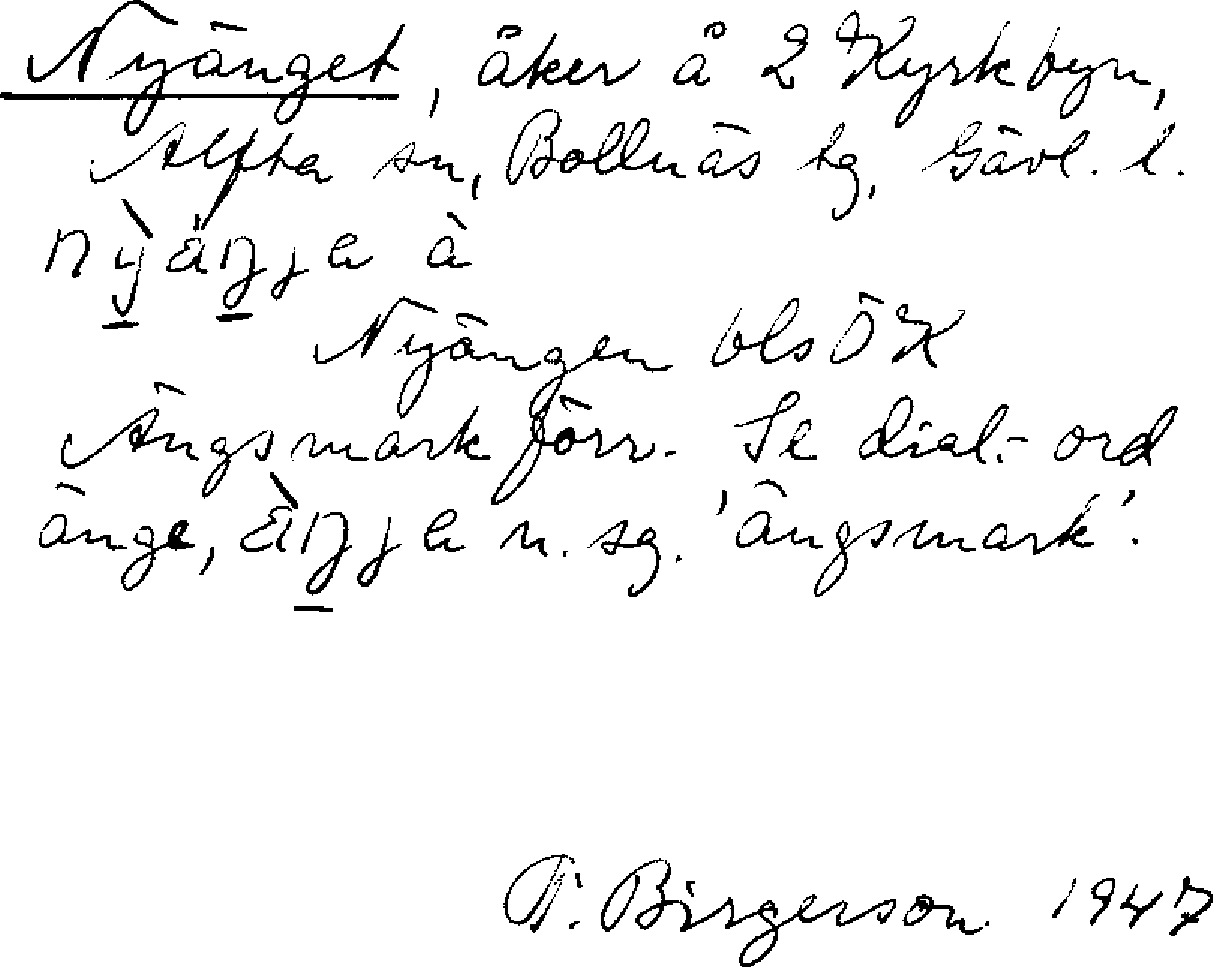 Nyänget, åker å 2 Kyrkbyn,
Alfta sn, Bollnäs tg, Gävl. l.
nỳäŋja à
Nyängen bls ÖK
Ängsmark förr. Se dial.-ord
änge, ä̀ŋja n. sg. 'ängsmark'.
Birgerson 1947